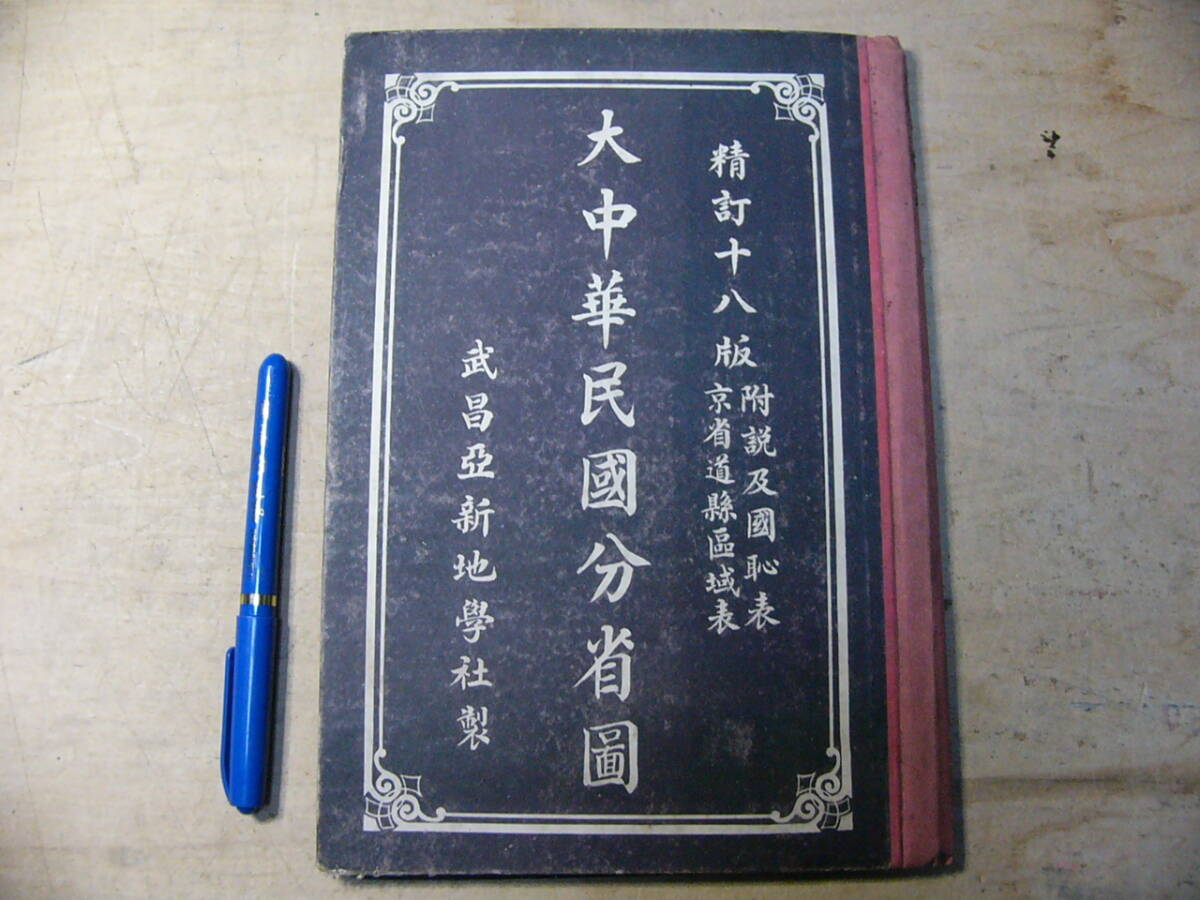 精訂十八版
附説及國恥表
京省道縣區域表
大中華民國分省圖
武昌亞新地學社製